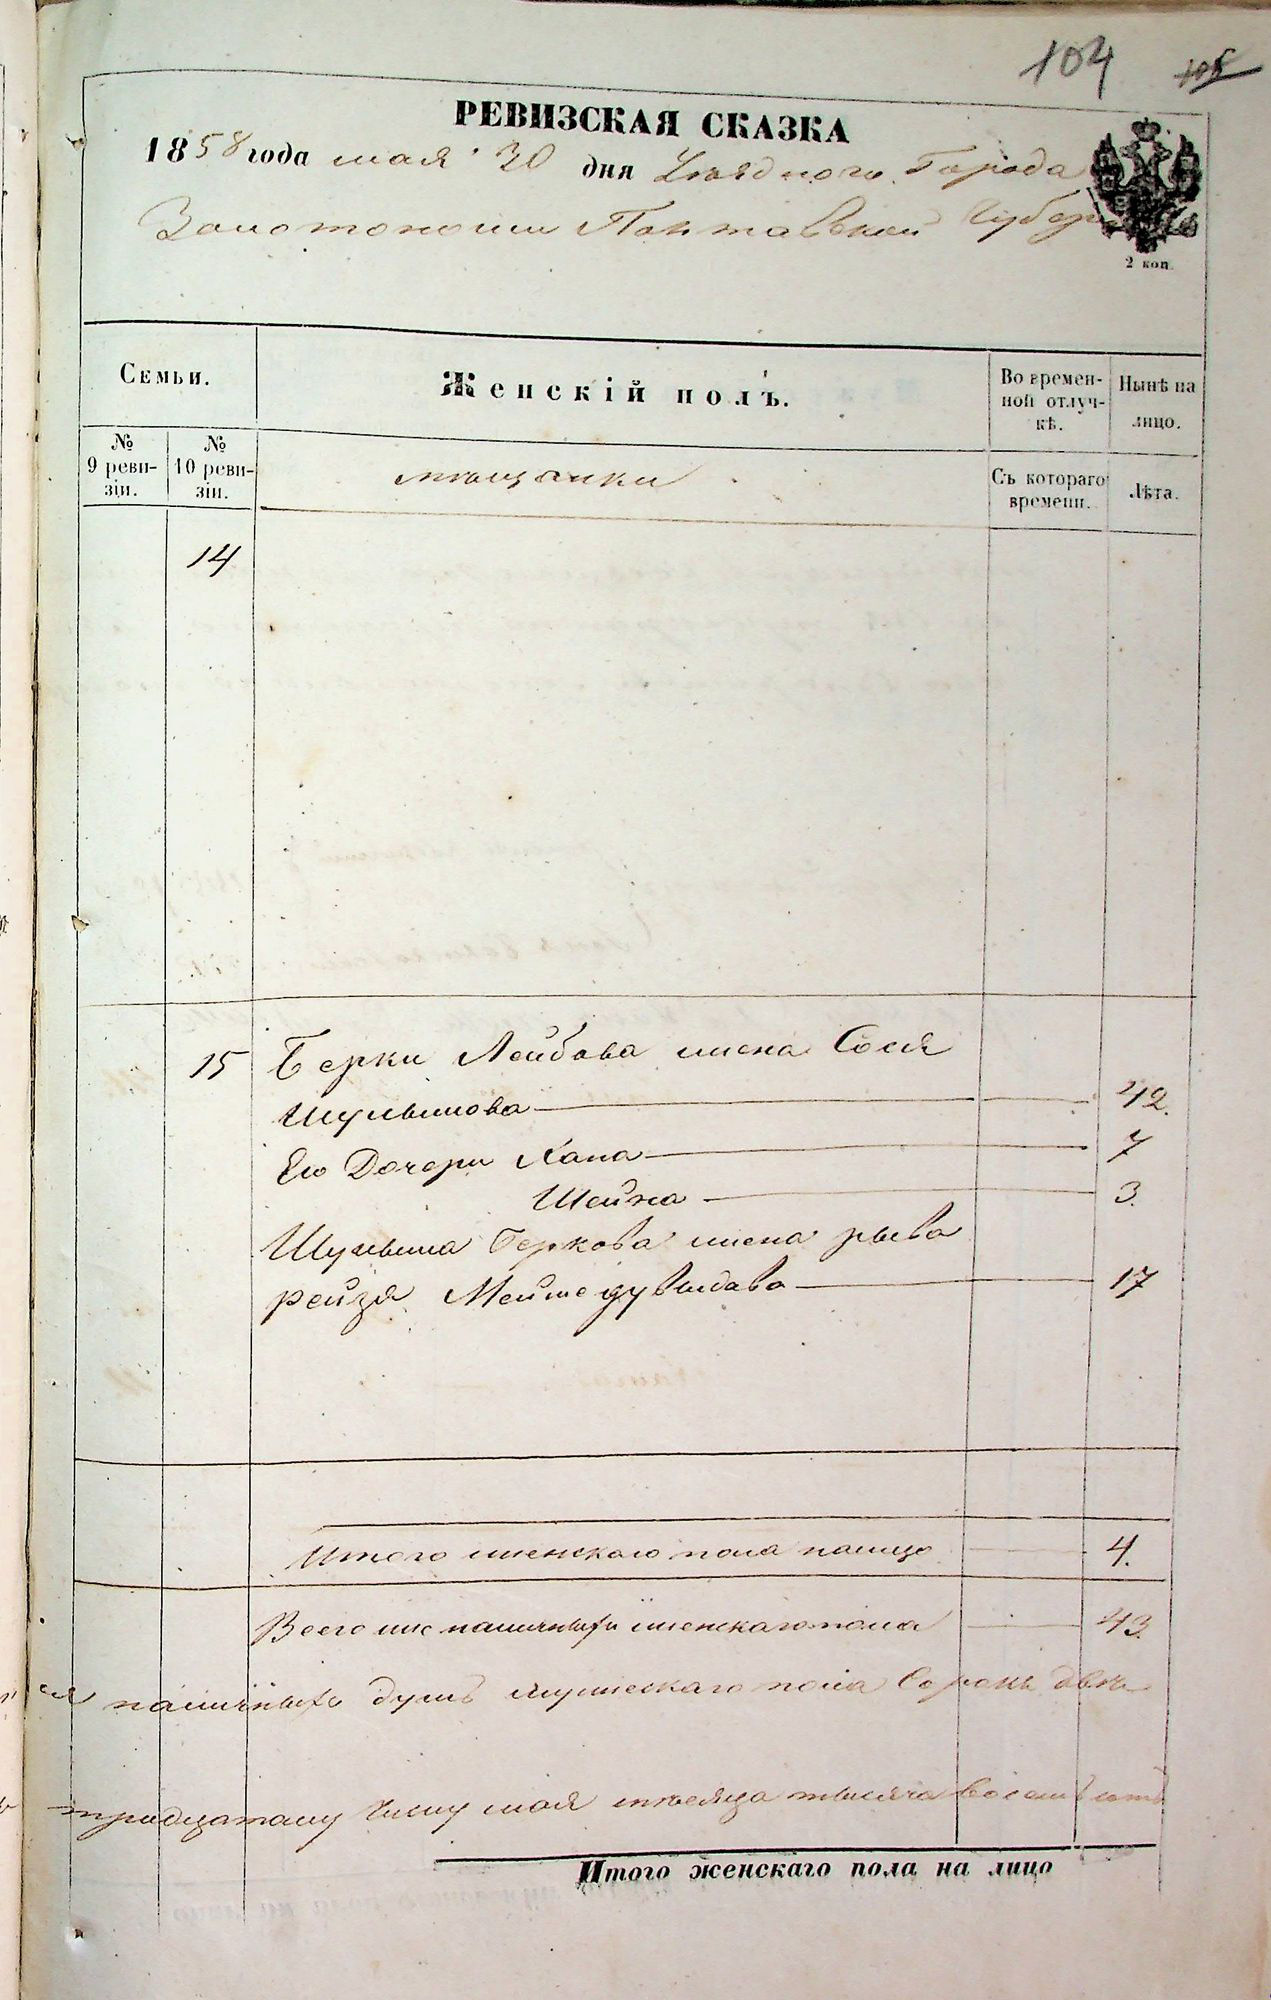 104 105
РЕВИЗСКАЯ СКАЗКА
1858 года мая 30 дня Уѣзднаго Города
Золотоноши Полтавской Губер
2 коп.
Семьи.
Женскій полъ.
Во времен-
ной отлуч-
кѣ.
Нынѣ на
лицо.
№
9 реви-
зіи.
№
10 реви-
зіи.
мѣщанки
Съ котораго
времени.
Лѣта.
14
15 Берки Лейбова жена Сося
Шульимова 42.
Его Дочери Хана 7
Шейна 3.
Шульима Беркова жена рыва
рейзя Мейше дувыдова 17
Итого женскаго пола налицо 4.
Всего же наличныхъ женскаго пола 43.
наличныхъ душъ мужескаго пола Сорокъ двѣ
тридцатому Числу мая мѣсяца тысяча восемьсотъ
Итого женскаго пола на лицо